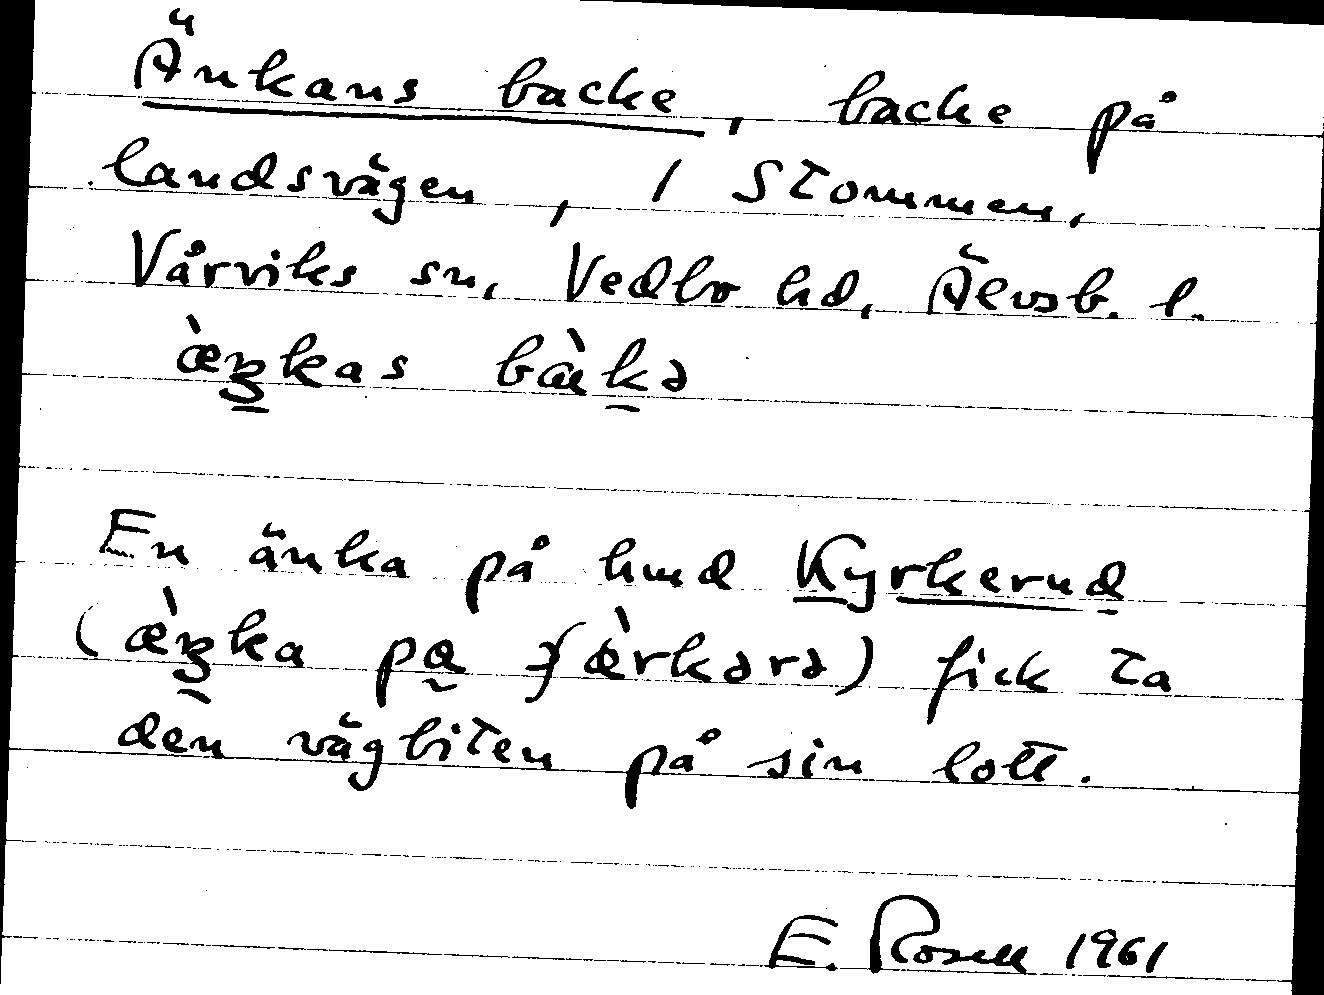 Änkans backe, backe på
landsvägen, / Stommen,
Vårviks sn, Vedbo hd, Älvsb. l.
æ̀ŋkas bàkə
En änka på hmd Kyrkerud
(æ̀ŋka pa æ̀rkərə) fick ta
den vägbiten på sin lott.
E. Rosell 1961